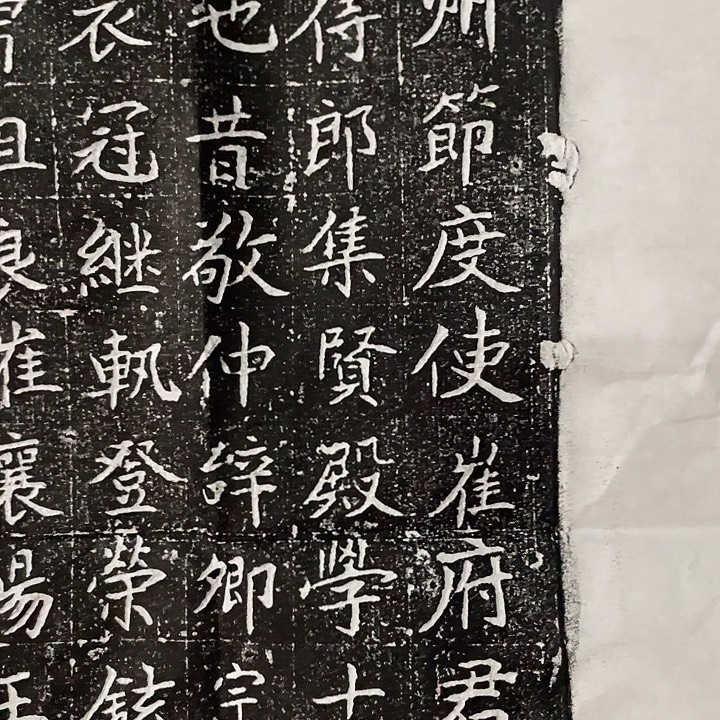 州節度使崔府君
得郎集賢殿學士
也昔敬仲辭卿宗
衣冠繼軌登榮鉉